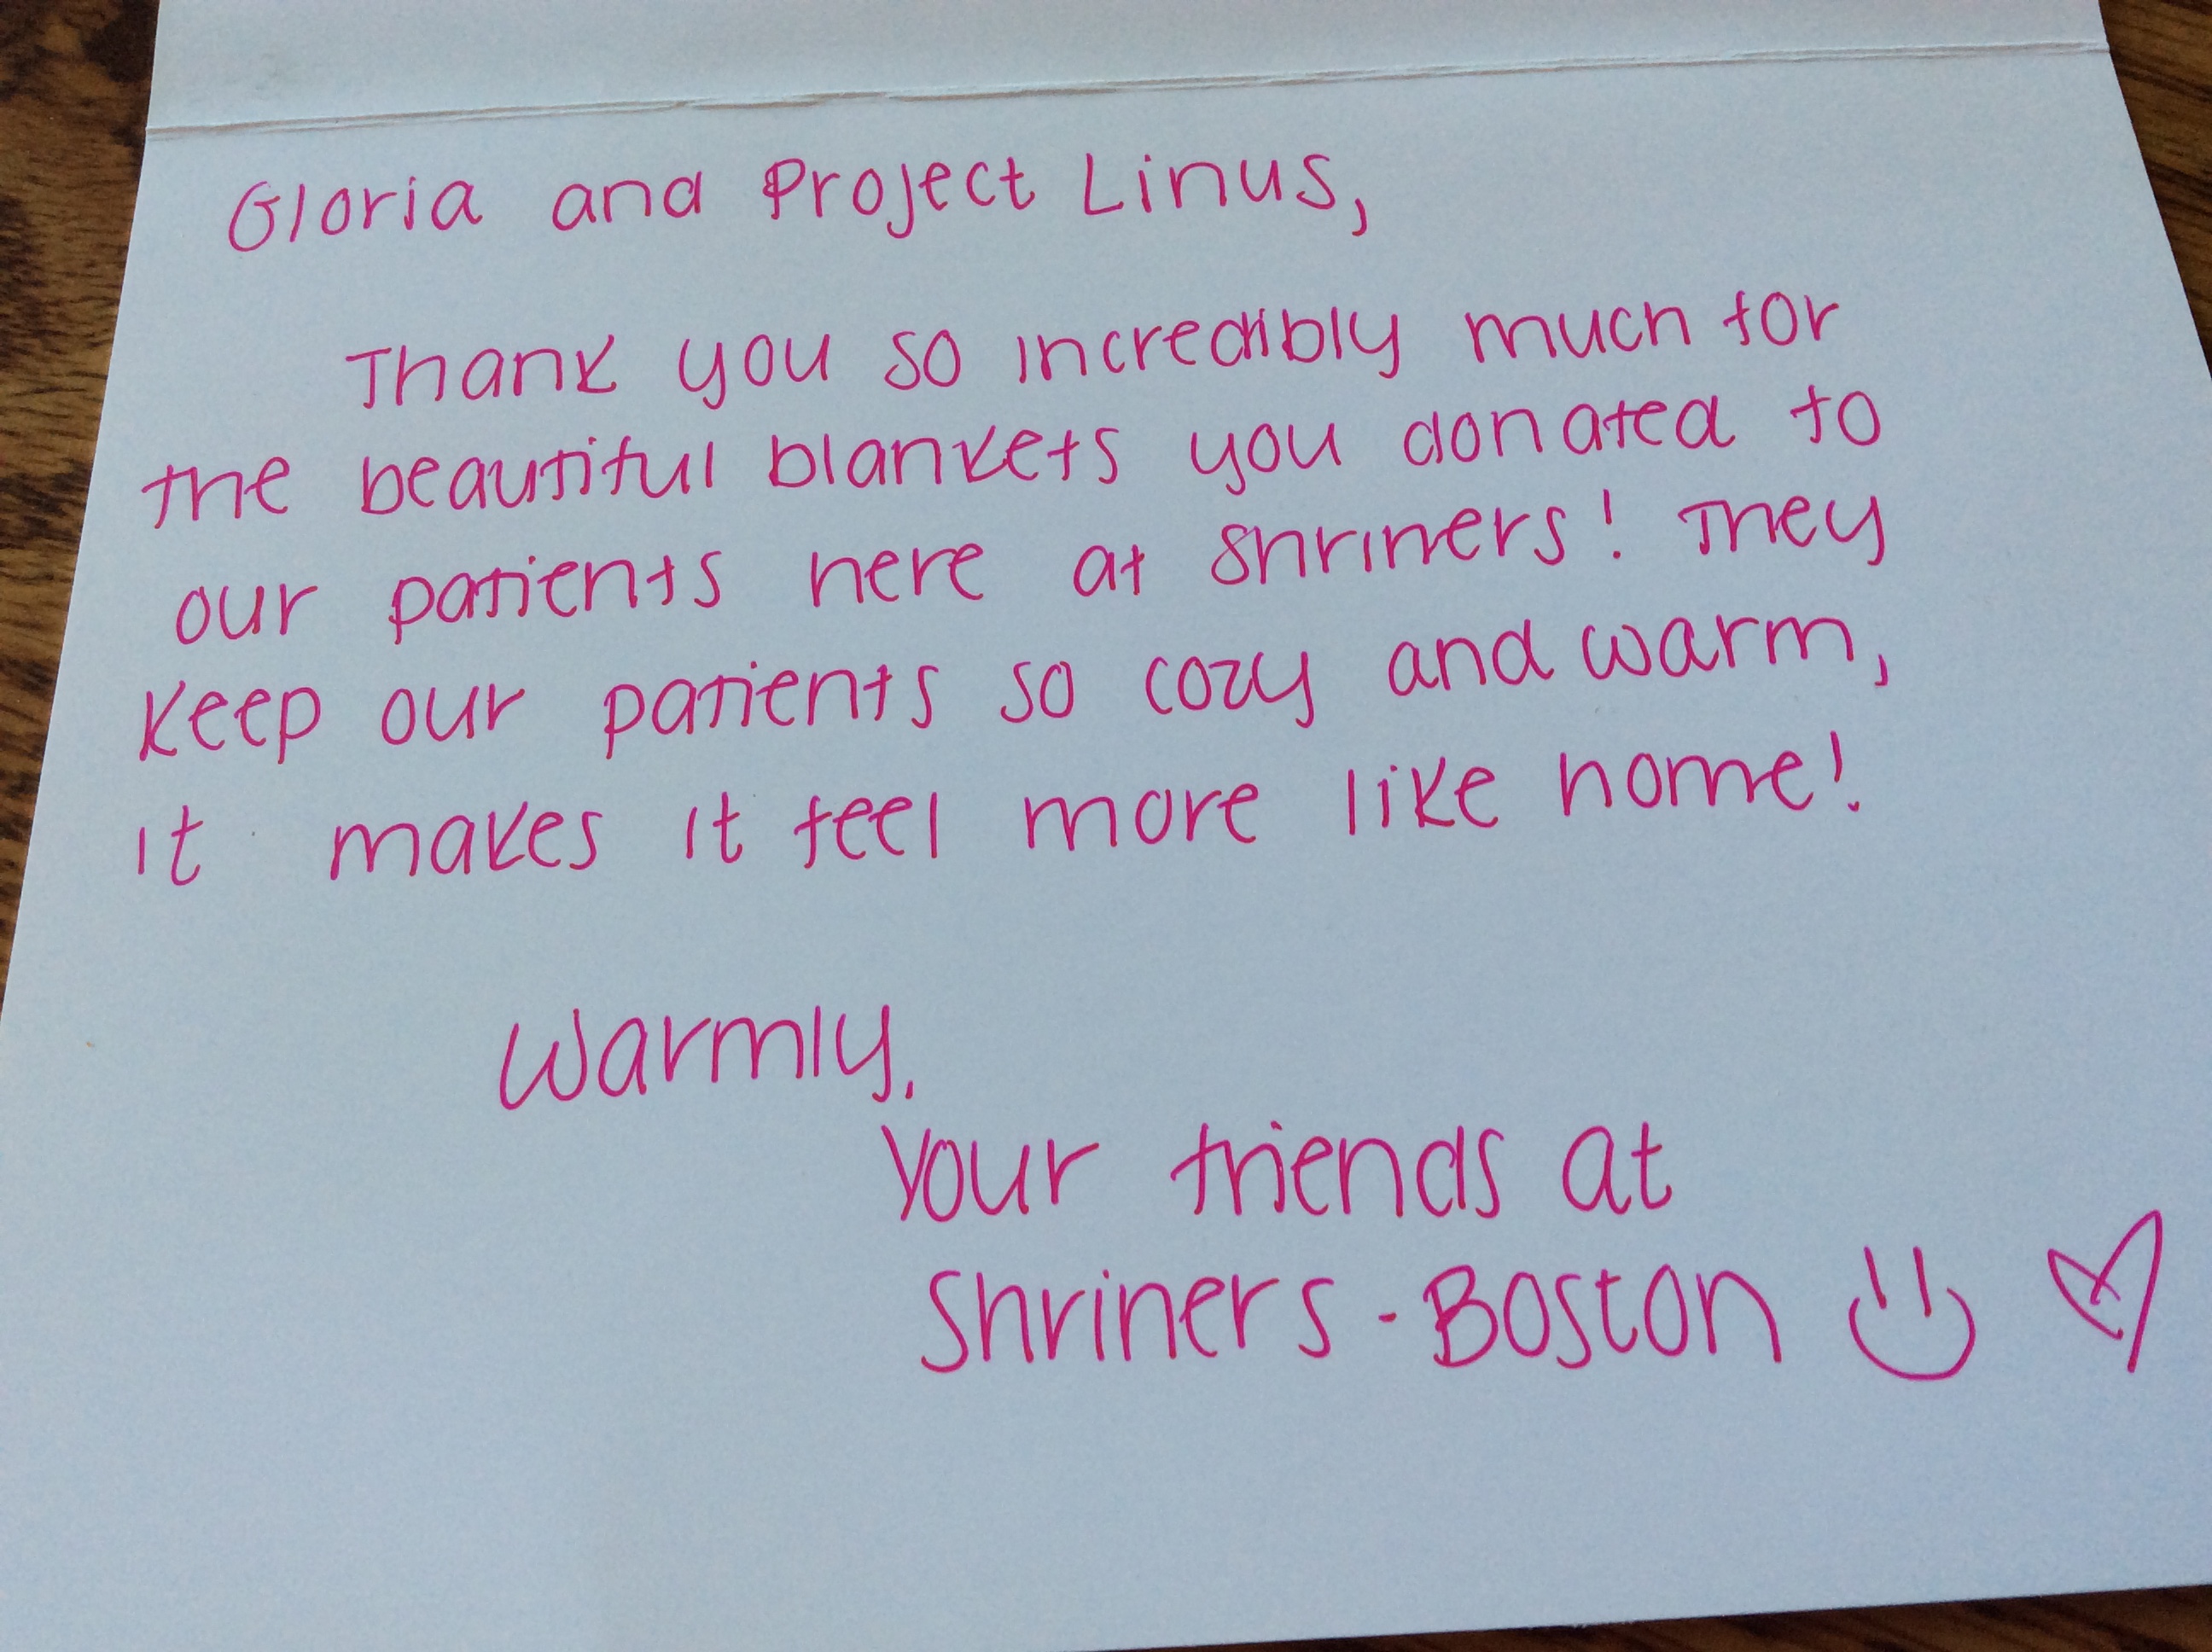 Gloria and Project Linus,
Thank you so incredibly much for
the beautiful blankets you donated to
our patients here at Shriners! They
keep our patients so cozy and warm,
it makes it feel more like home!
Warmly,
Your friends at
Shriners - Boston